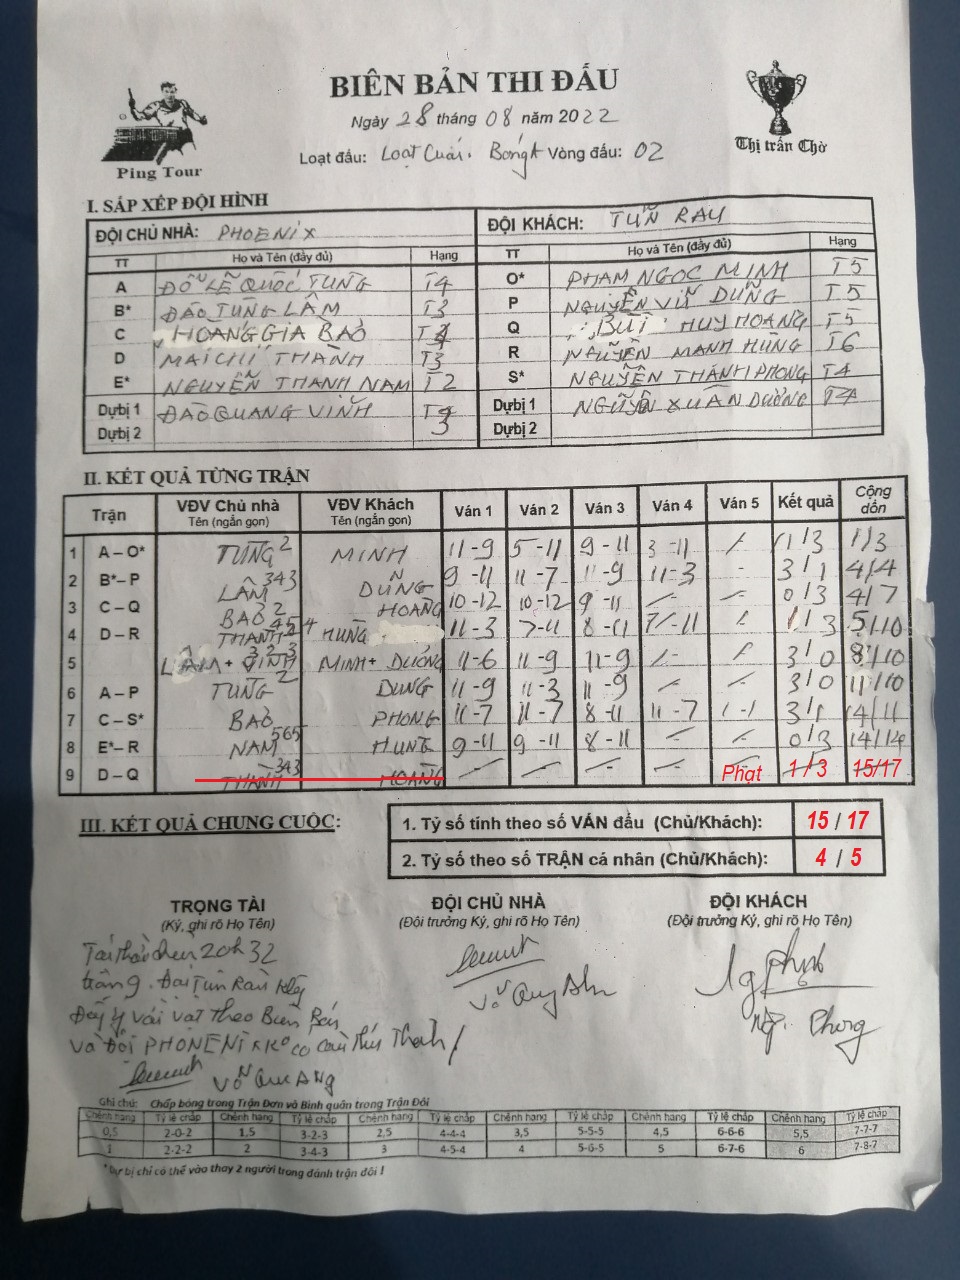 BIÊN BẢN THI ĐẤU
Ping Tour
Thị trấn Chờ
Ngày 28 tháng 08 năm 2022
Loạt đấu: Loạt Cuối. Bảng A Vòng đấu: 02
I. SẮP XẾP ĐỘI HÌNH
ĐỘI CHỦ NHÀ: PHOENIX ĐỘI KHÁCH: TUẤN RAU
TT Họ và Tên (đầy đủ) Hạng TT Họ và Tên (đầy đủ) Hạng
A ĐỖ LÊ QUỐC TÙNG T4 O* PHẠM NGỌC MINH T5
B* ĐÀO TÙNG LÂM T3 P NGUYỄN VŨ DŨNG T5
C HOÀNG GIA BẢO Q BÙI HUY HOÀNG T5
D MAI CHÍ THÀNH T3 R NGUYỄN MẠNH HÙNG T6
E* NGUYỄN THÀNH NAM T2 S* NGUYỄN THÀNH PHONG T4
Dự bị 1 ĐÀO QUANG VINH Dự bị 1 NGUYỄN XUÂN DƯƠNG T4
Dự bị 2 Dự bị 2
II. KẾT QUẢ TỪNG TRẬN
Trận VĐV Chủ nhà Tên (ngắn gọn) VĐV Khách Tên (ngắn gọn) Ván 1 Ván 2 Ván 3 Ván 4 Ván 5 Kết quả Cộng dồn
1 A – O* TÙNG 2 MINH 11-9 5-11 9-11 3-11 1/3 1/3
2 B* – P LÂM 343 DŨNG 9-11 11-7 11-9 11-3 - 3/1 4/4
3 C – Q BẢO 2 HOÀNG 10-12 10-12 9-11 0/3 4/7
4 D – R THÀNH 454 HÙNG 11-3 7-11 8-11 7-11 1/3 5/10
5 LÂM + VINH 323 MINH + DƯƠNG 11-6 11-9 11-9 3/0 8/10
6 A – P TÙNG 2 DŨNG 11-9 11-3 11-9 3/0 11/10
7 C – S* BẢO PHONG 11-7 11-7 8-11 11-7 3/1 14/11
8 E* – R NAM 565 HÙNG 9-11 9-11 8-11 0/3 14/14
9 D – Q THÀNH 343 HOÀNG Phạt 1/3 15/17
III. KẾT QUẢ CHUNG CUỘC:
1. Tỷ số tính theo số VÁN đấu (Chủ/Khách): 15 / 17
2. Tỷ số theo số TRẬN cá nhân (Chủ/Khách): 4 / 5
TRỌNG TÀI ĐỘI CHỦ NHÀ ĐỘI KHÁCH
(Ký, ghi rõ Họ Tên) (Đội trưởng Ký, ghi rõ Họ Tên) (Đội trưởng Ký, ghi rõ Họ Tên)
20h32
trận 9. Đội Tuấn Rau
theo Biên Bản
và Đội PHOENIX Ko có cầu thủ Thành
Ng. Phong
Ghi chú: Chấp bóng trong Trận Đơn và Bình quân trong Trận Đôi
Chênh hạng Tỷ lệ chấp Chênh hạng Tỷ lệ chấp Chênh hạng Tỷ lệ chấp Chênh hạng Tỷ lệ chấp Chênh hạng Tỷ lệ chấp Chênh hạng Tỷ lệ chấp
0,5 2-0-2 1,5 3-2-3 2,5 4-4-4 3,5 5-5-5 4,5 6-6-6 5,5 7-7-7
1 2-2-2 2 3-4-3 3 4-5-4 4 5-6-5 5 6-7-6 6 7-8-7
* Dự bị chỉ có thể vào thay 2 người trong đánh trận đôi !